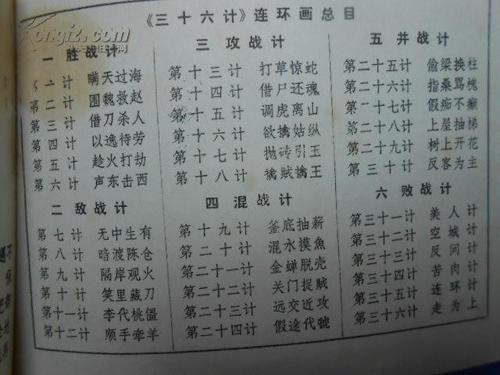 《三十六计》连环画总目
一 胜战计
第一计 瞒天过海
第二计 围魏救赵
第三计 借刀杀人
第四计 以逸待劳
第五计 趁火打劫
第六计 声东击西
二 敌战计
第七计 无中生有
第八计 暗渡陈仓
第九计 隔岸观火
第十计 笑里藏刀
第十一计 李代桃僵
第十二计 顺手牵羊
三 攻战计
第十三计 打草惊蛇
第十四计 借尸还魂
第十五计 调虎离山
第十六计 欲擒姑纵
第十七计 抛砖引玉
第十八计 擒贼擒王
四 混战计
第十九计 釜底抽薪
第二十计 混水摸魚
第二十一计 金蝉脱壳
第二十二计 关门捉贼
第二十三计 远交近攻
第二十四计 假途代虢
五 并战计
第二十五计 偷梁换柱
第二十六计 指桑骂槐
第二十七计 假痴不癫
第二十八计 上屋抽梯
第二十九计 树上开花
第三十计 反客为主
六 败战计
第三十一计 美人计
第三十二计 空城计
第三十三计 反间计
第三十四计 苦肉计
第三十五计 连环计
第三十六计 走为上